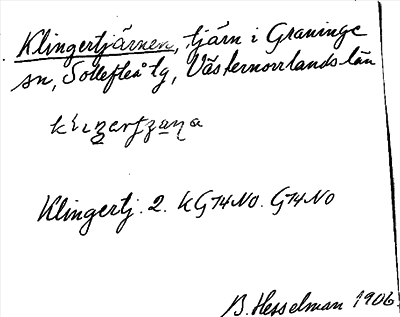 Klingertjärnen, tjärn i Graninge
sn, Sollefteå tg, Västernorrlands län
Klingertj. 2. KG74NO. G74NO
B. Hesselman 1906